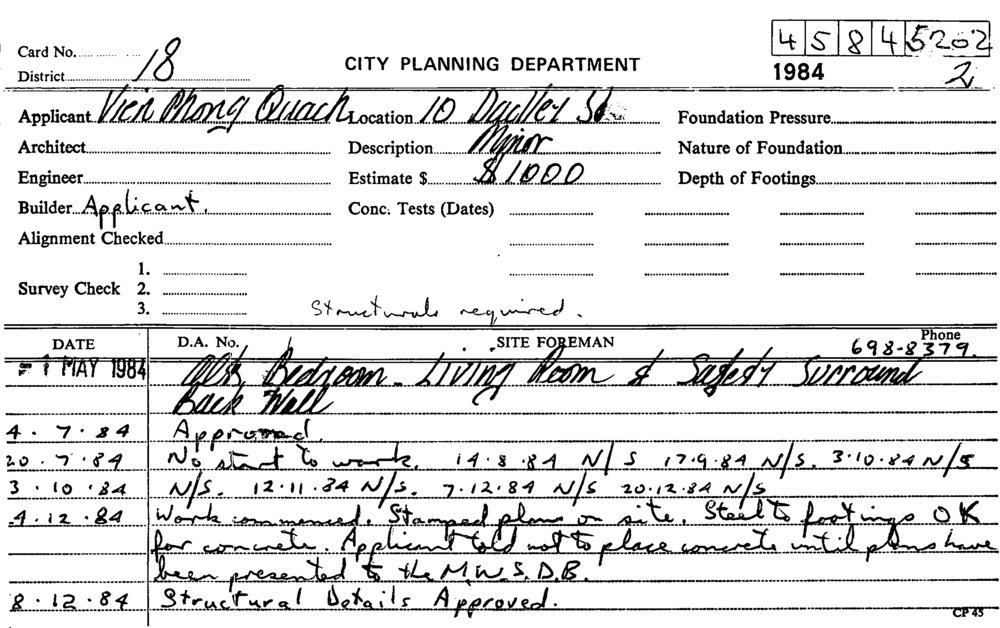 Card No. 18 4 5 8 4 5202
District CITY PLANNING DEPARTMENT 1984 2
Applicant Vien Phong Quach Location 10 Dudley St Foundation Pressure
Architect Description Minor Nature of Foundation
Engineer Estimate $ $1000 Depth of Footings
Builder Applicant. Conc. Tests (Dates)
Alignment Checked
1.
Survey Check 2.
3. Structurals required.
DATE D.A. No. SITE FOREMAN Phone 698-8379.
- 1 MAY 1984 Bedroom - Living Room & Safety Surround
Back Wall
4.7.84 Approved.
20.7.84 No start to work. 14.8.84 N/S 17.9.84 N/S. 3.10.84 N/S
3.10.84 N/S. 12.11.84 N/S. 7.12.84 N/S 20.12.84 N/S
4.12.84 Work commenced. Stamped plans on site. Steel to footings OK
for concrete. Applicant told not to place concrete until plans have
been presented to the M.W.S.D.B.
8.12.84 Structural Details Approved.
CP 45